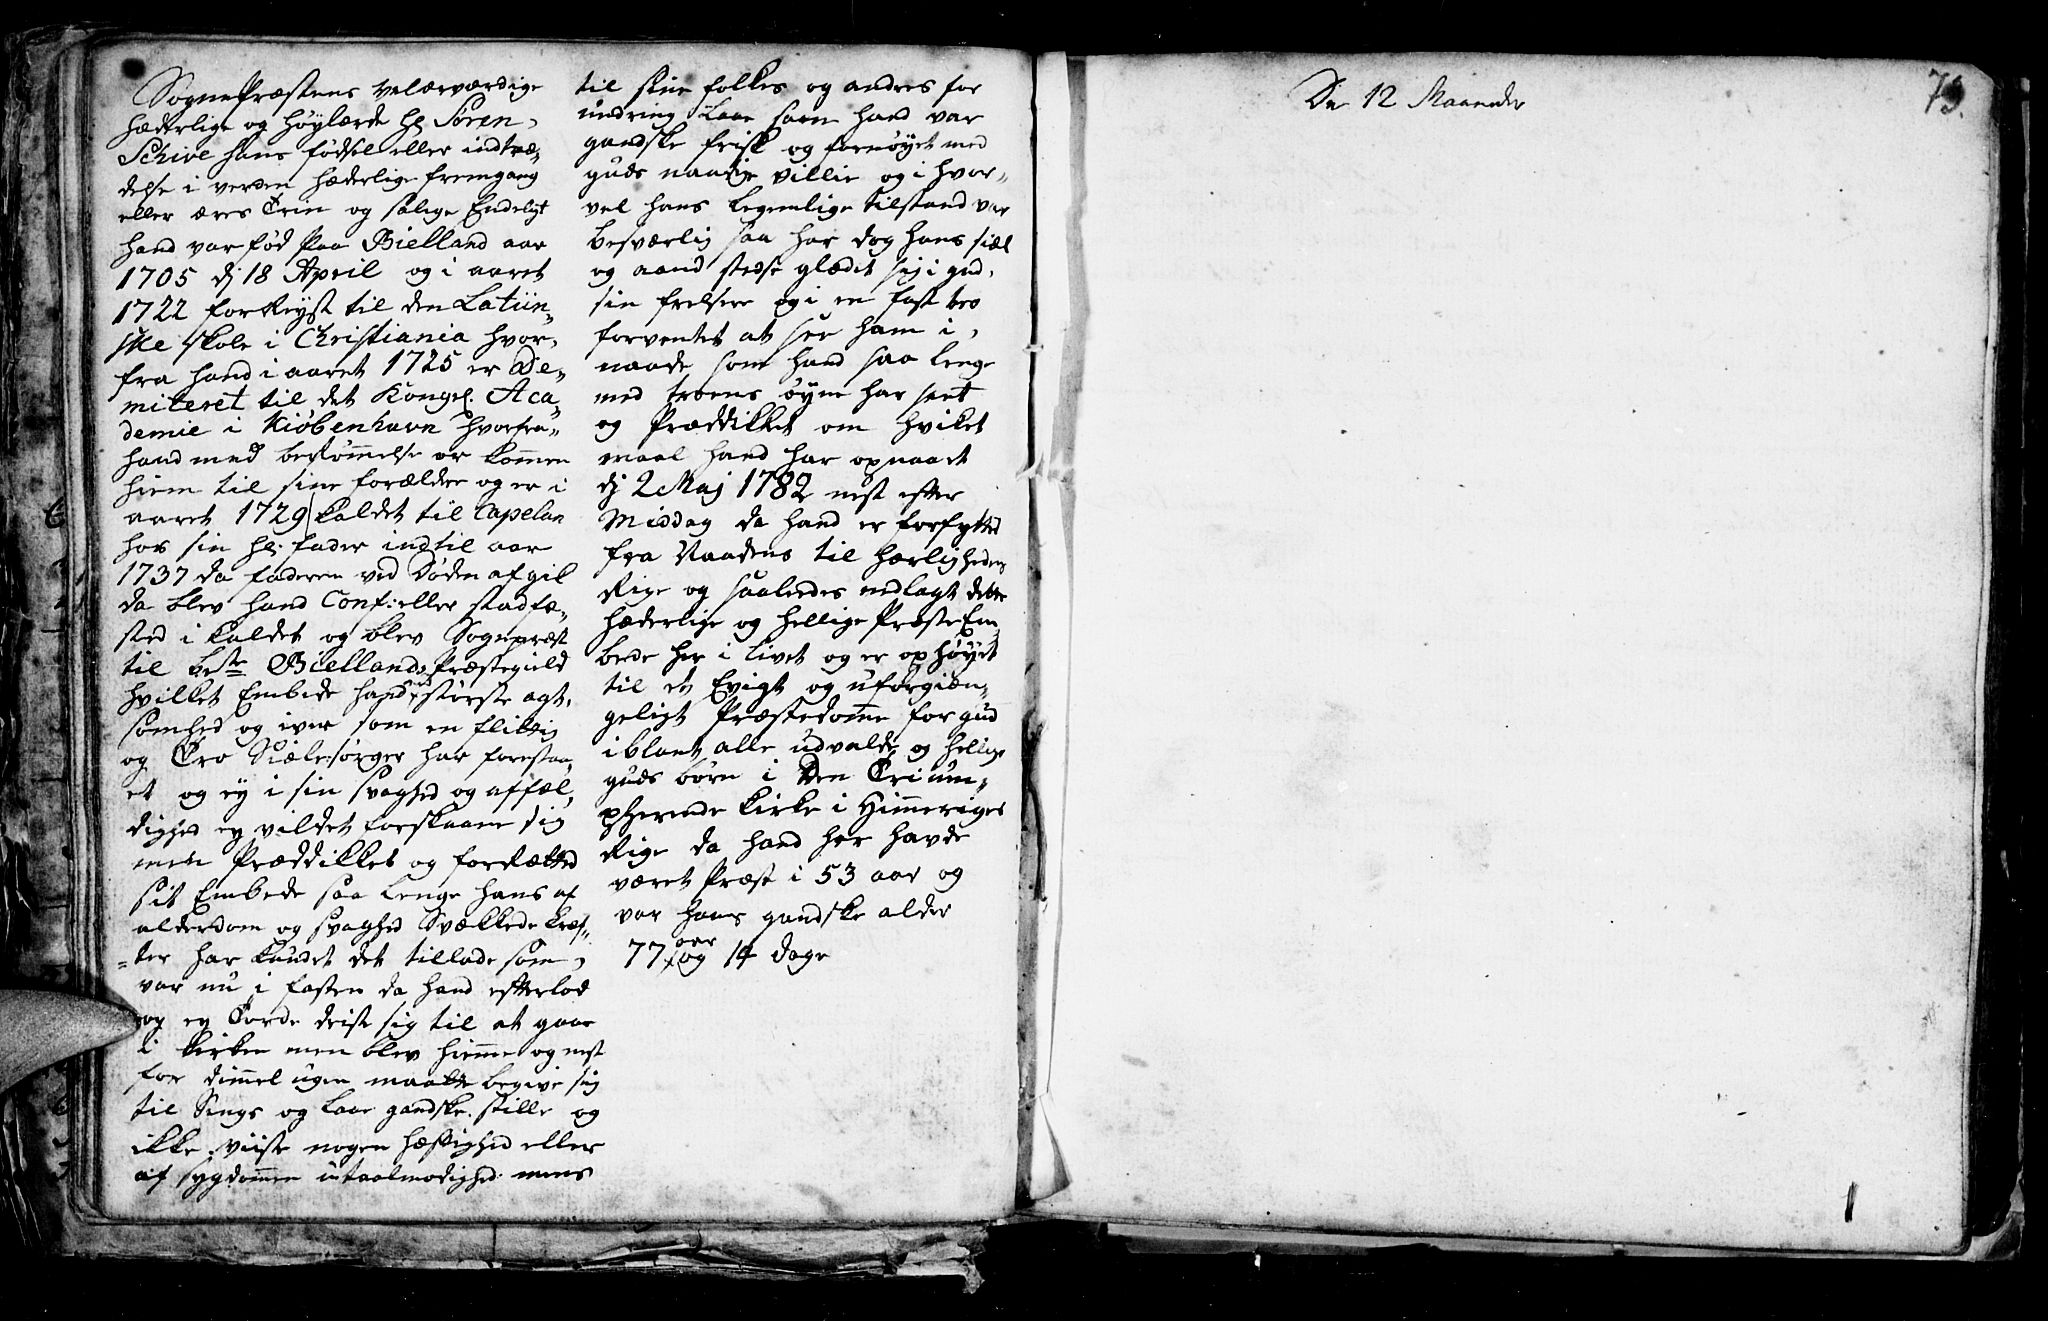 SognePræstens velærværdige
hæderlige og høylærde hr Søren
Schive hans fødsel eller indtræ-
delse i verden hæderlige fremgang
eller æres Trin og salige Endeligt
hand var fød paa Bielland aar
1705 dj 18 April og i aaret
1722 forreyst til den Latiin-
ske skole i Christiania hvor-
fra hand i aaret 1725 er De-
miteret til det Kongel. Aca-
demie i Kiøbenhavn hvorfra
hand med berømmelse er kommen
hiem til sine forældre og er i
aaret 1729 kaldet til Capelan
hos sin hr: fader indtil aar
1737 da faderen ved Døden afgik
da blev hand Conf: eller stadfæ-
sted i kaldet og blev Sognepræst
til bete Biellands Præstegield
hvilket Embede hand med største agt-
somhed og iver som en flittig
og Tro Siæle-sørger har forestaa-
et og ey i sin svaghed og affæl-
dighed ey vildet forskaane sig
men Præddikket og forRætted
sit Embede saa lenge hans af
alderdom og svaghed Svækkede kræf-
ter har kundet det tillade som
var nu i fasten da hand efterlod
og ey Torde driste sig til at gaae
i kirken men blev hiemme og nest
for dimmel ugen maatte begive sig
til Sengs og laae gandske stille og
ikke viiste nogen hæftighed eller
af sygdommen utaalmodighed mens
til sine folkes og andres for
undring laae som hand var
gandske frisk og fornøyet med
guds naadige villie og i hvor-
vel hans legemlige tilstand var
besværlig saa har dog hans siæl
og aand stedse glædet sig i gud
sin frelsere og i en fast troe
forventet at see ham i
naade som hand saa lenge
med troens øyne har seet
og Præddikket om hvilket
maal hand har opnaaet
dj 2 Maj 1782 nest efter
Middag da hand er forfyttet
fra Naadens til hærlighedens
Rige og saaledes nedlagt dette
hæderlige og hellige Præste Em-
bede her i Livet og er ophøyet
til et Evigt og uforgiæn-
geligt Præstedomme for gud
iblant alle udvalde og hellige
guds børn i Den Trium-
pherende kirke i Himmeriges
Rige da hand her havde
været Præst i 53 aar og
var hans gandske alder
77 aar og 14 dage
De 12 Maaneder
79.